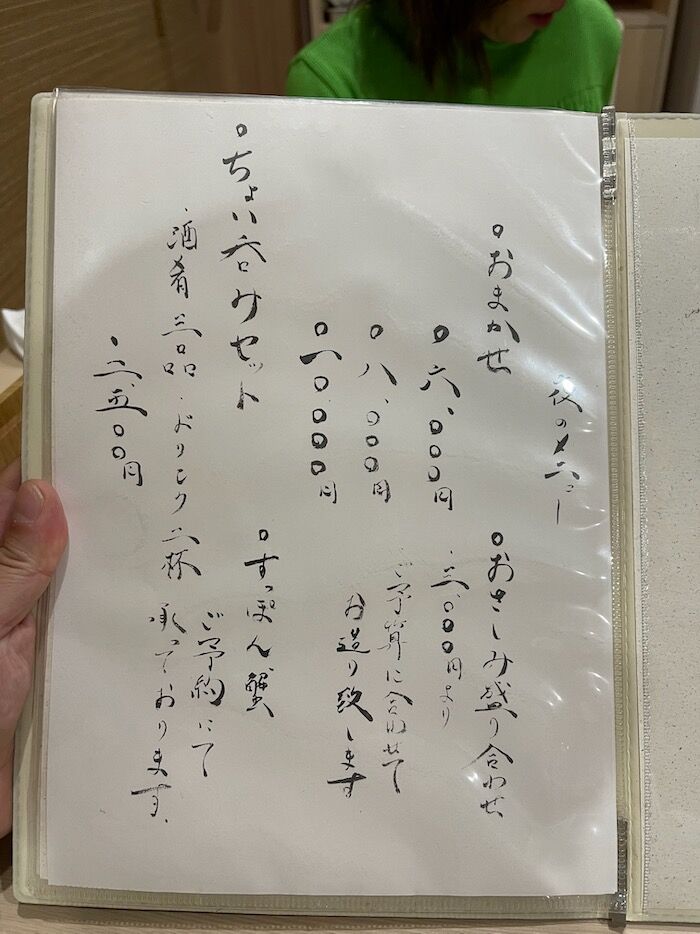 夜のメニュー
○おまかせ
○六、〇〇〇円
○八、〇〇〇円
○一〇〇〇〇円
○ちょい呑みセット
・酒肴三品・ドリンク二杯
・二、五〇〇円
○おさしみ盛り合わせ
・三、〇〇〇円より
ご予算に合わせて
お造り致します
○すっぽん蟹
ご予約にて
承っております。